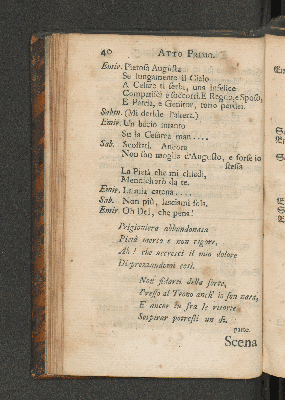 40 ATTO PRIMO.
Emir. Pietosa Augusta
Se lungamente il Cielo
A Cesare ti serbi, una infelice
Compatisci e soccorri. E Regno, e Sposo,
E Patria, e Genitor, tutto perdei.
Sabin. (Mi deride l'altera.)
Emir. Un bacio intanto
Su la Cesarea man....
Sab. Scostati. Ancora
Non son moglie d'Augusto, e forse io
stessa
La Pietà che mi chiedi,
Mendicherò da te.
Emir. La mia catena....
Sab. Non più, lasciami sola.
Emir. Oh Dei, che pena!
Prigioniera abbandonata
Pietà merto e non rigore,
Ah! che accresci il mio dolore
Disprezzandomi così.
Non fidarti della sorte,
Presso al Trono anch' io son nata,
E ancor tu fra le ritorte
Sospirar potresti un dì.
parte.
Scena